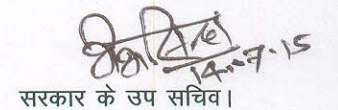 14-7-15
सरकार के उप सचिव।